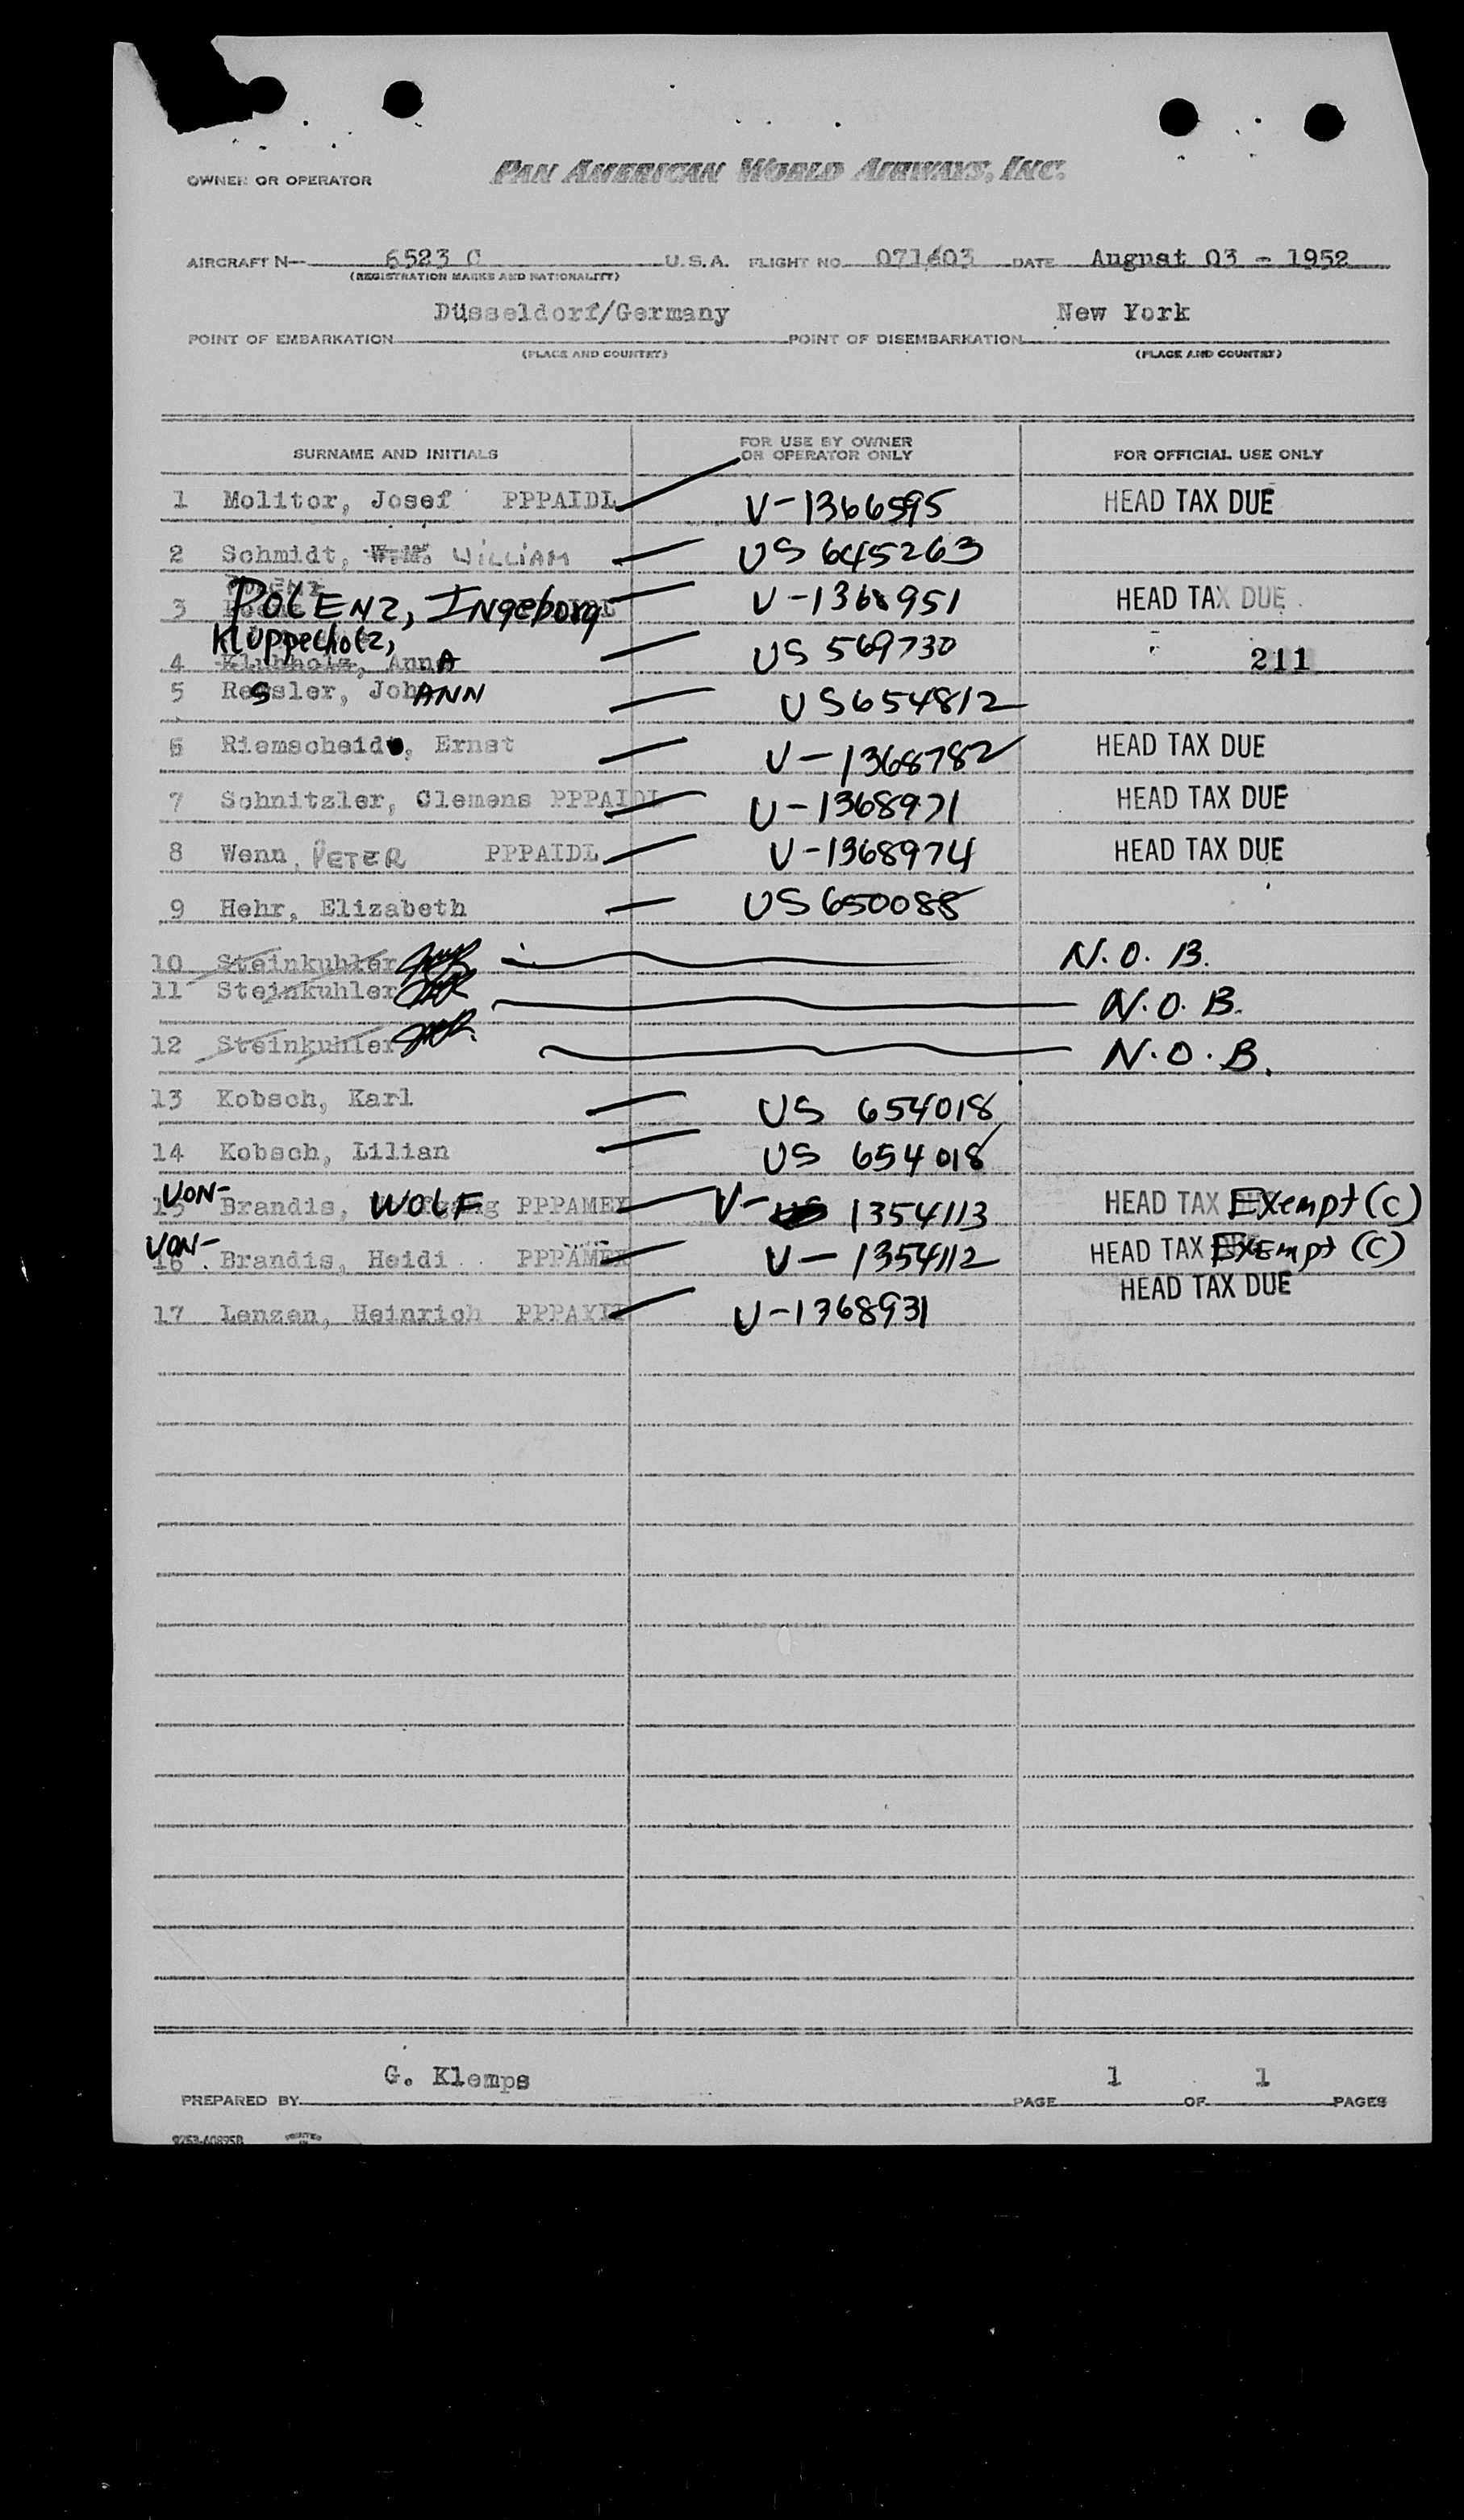 OWNER OR OPERATOR PAN AMERICAN WORLD AIRWAYS, INC.
AIRCRAFT N- 6523 C U.S.A. FLIGHT NO. 071603 DATE August 03 - 1952
(REGISTRATION MARKS AND NATIONALITY)
Düsseldorf/Germany New York
POINT OF EMBARKATION POINT OF DISEMBARKATION
(PLACE AND COUNTRY) (PLACE AND COUNTRY)
SURNAME AND INITIALS FOR USE BY OWNER OR OPERATOR ONLY FOR OFFICIAL USE ONLY
1 Molitor, Josef PPPAIDL V-1366595 HEAD TAX DUE
2 Schmidt, W.M. WILLIAM US 645263
3 POLENZ, INgeborg V-1368951 HEAD TAX DUE
Klüppelholz,
4 Anna US 569730 211
5 Ressler, JohANN US654812
6 Riemscheid, Ernst V-1368782 HEAD TAX DUE
7 Schnitzler, Clemens PPPAIDL V-1368971 HEAD TAX DUE
8 Wenn, PETER PPPAIDL V-1368974 HEAD TAX DUE
9 Hehr, Elizabeth US650088
10 Steinkuhler N.O.B.
11 Steinkuhler N.O.B.
12 Steinkuhler N.O.B.
13 Kobsch, Karl US 654018
14 Kobsch, Lilian US 654018
VON-
15 Brandis, WOLFgang PPPAMEX V- 1354113 HEAD TAX Exempt (C)
VON-
16 Brandis, Heidi PPPAMEX V-1354112 HEAD TAX EXEmpt (C)
17 Lenzen, Heinrich V-1368931 HEAD TAX DUE
G. Klemps 1 1
PREPARED BY PAGE OF PAGES